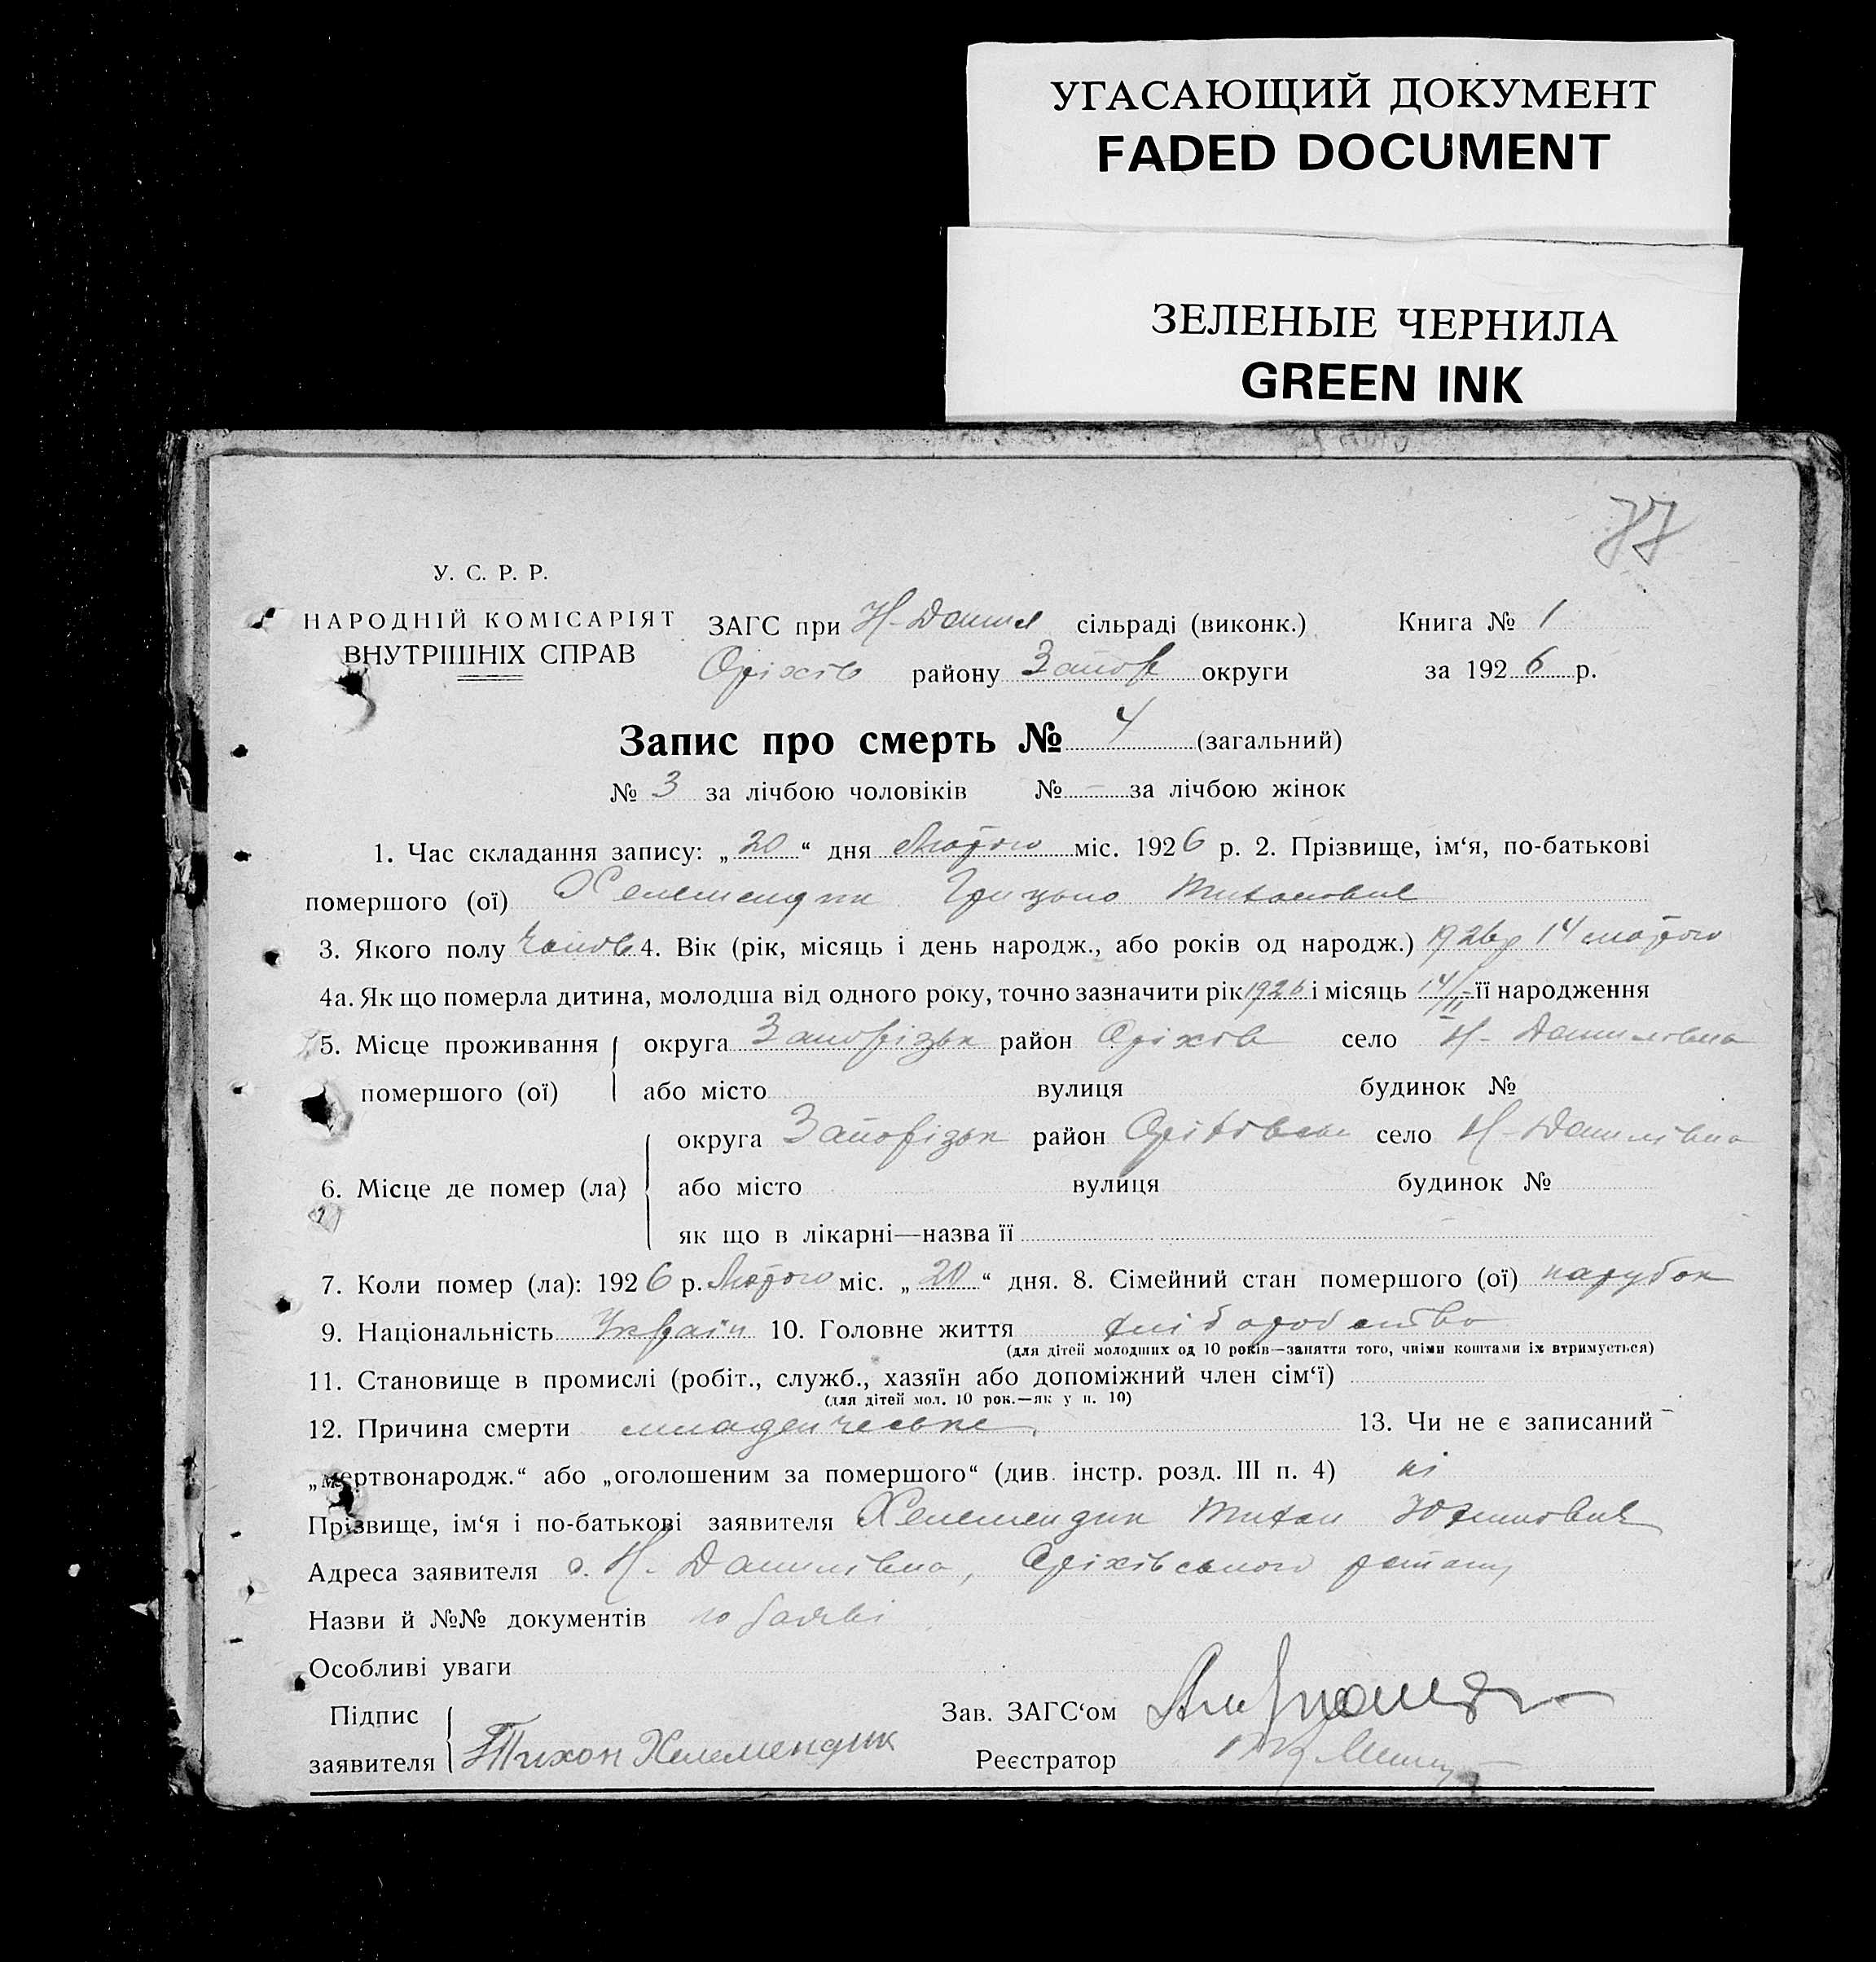 УГАСАЮЩИЙ ДОКУМЕНТ
FADED DOCUMENT
ЗЕЛЕНЫЕ ЧЕРНИЛА
GREEN INK
77
У. С. Р. Р.
НАРОДНІЙ КОМІСАРІЯТ
ВНУТРІШНІХ СПРАВ
ЗАГС при Н-Данил сільраді (виконк.) Книга № 1
Оріхів району Запор округи за 1926 р.
Запис про смерть № 4 (загальний)
№ 3 за лічбою чоловіків № - за лічбою жінок
1. Час складання запису: „20“ дня Лютого міс. 1926 р. 2. Прізвище, ім‘я, по-батькові
помершого (ої) Хелемендик Грицько Тихонович
3. Якого полу Чолов 4. Вік (рік, місяць і день народж., або років од народж.) 1926р 14 лютого
4а. Як що померла дитина, молодша від одного року, точно зазначити рік 1926 і місяць 14/II її народження
5. Місце проживання помершого (ої) округа Запорізьк район Оріхів село Н-Данилівка
або місто вулиця будинок №
6. Місце де помер (ла) округа Запорізьк район Оріхівськ село Н-Данилівка
або місто вулиця будинок №
як що в лікарні—назва її
7. Коли помер (ла): 1926 р. Лютого міс. „20“ дня. 8. Сімейний стан помершого (ої) парубок
9. Національність Україн 10. Головне життя хліборобство
(для дітей молодших од 10 років—заняття того, чиїми коштами їх втримується)
11. Становище в промислі (робіт., служб., хазяїн або допоміжний член сім‘ї)
(для дітей мол. 10 рок.—як у п. 10)
12. Причина смерти младенческе 13. Чи не є записаний
„мертвонародж.“ або „оголошеним за помершого“ (див. інстр. розд. III п. 4) ні
Прізвище, ім‘я і по-батькові заявителя Хелемендик Тихон Юхимович
Адреса заявителя с. Н-Данилівка, Оріхівського району
Назви й №№ документів
Особливі уваги
Підпис заявителя Тихон Хелемендик
Зав. ЗАГС‘ом
Реєстратор